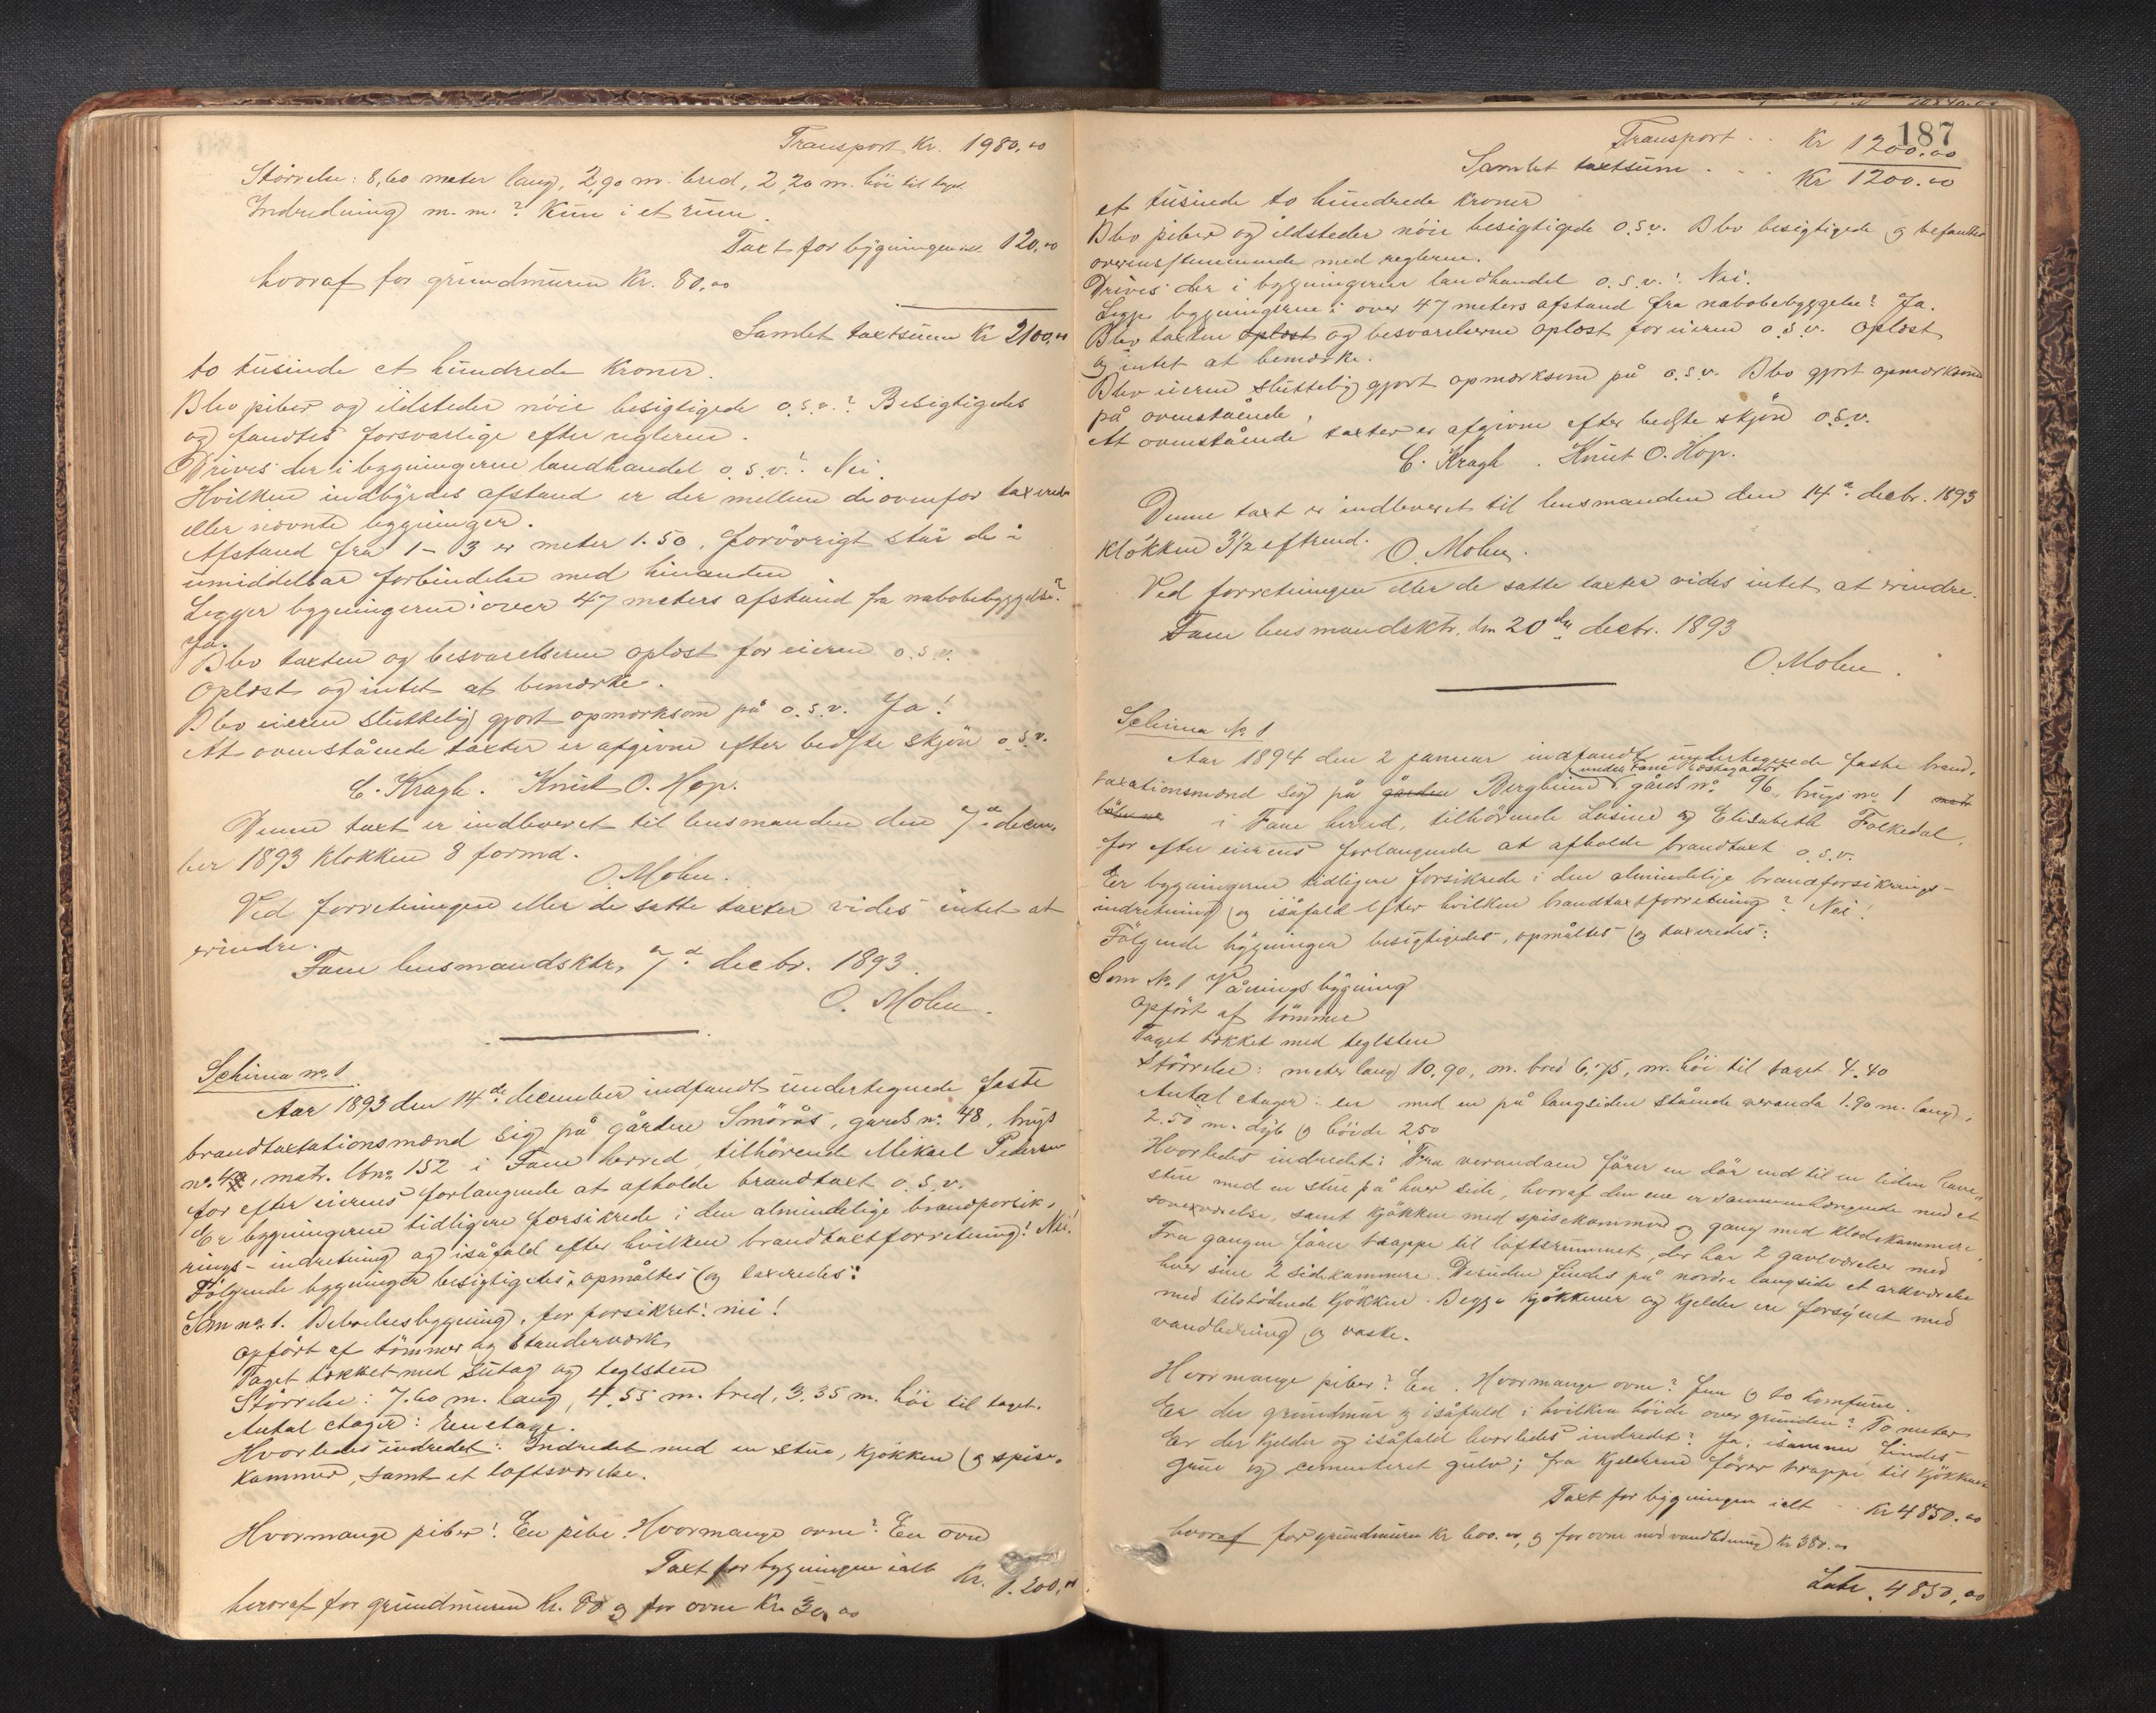 Transport Kr. 1980.00
Störrelse: 8,60 meter lang, 2,90 m. bred, 2,20 m. höi til taget.
Indredning m. m.? Kun i et rum.
Taxt for bygningen ialt 120.00
hvoraf for grundmuren Kr. 80.00
Samlet taxtsum Kr 2100.00
to tusinde et hundrede Kroner.
Blev piber og ildsteder nöie besigtigede o.s.v.? Besigtigedes
og fandtes forsvarlige efter reglerne.
Drives der i bygningerne landhandel o.s.v.? Nei
Hvilken indbyrdes afstand er der mellem de ovenfor taxerede
eller nævnte bygninger.
Afstand fra 1-3 er meter 1.50, forövrigt står de i
umiddelbar forbindelse med hinanden
Ligger bygningerne i over 47 meters afstand fra nabobebyggelse?
Ja.
Blev taxten og besvarelserne oplæst for eieren o.s.v.
Oplæst og intet at bemærke.
Blev eieren sluttelig gjort opmærksom på o.s.v. Ja!
At ovenstående taxter er afgivne efter bedste skjön o.s.v.
C. Kragh. Knut O. Hop.
Denne taxt er indleveret til lensmanden den 7de decem-
ber 1893 klokken 8 formd.
O. Mohn.
Ved forretningen eller de satte taxter vides intet at
erindre.
Fane lensmandsktr, 7de decbr. 1893.
O. Mohn.
Schima no. 1.
Aar 1893 den 14de december indfandt undertegnede faste
brandtaxtationsmænd sig på gården Smörås, gards no. 48, brugs
no. 4, matr. lbno. 152 i Fane herred, tilhörende Mikael Pedersen
for efter eierens forlangende at afholde brandtaxt o.s.v.
Er bygningerne tidligere forsikrede i den almindelige brandforsik-
rings-indretning og isåfald efter hvilken brandtaxtforretning? Nei!
Fölgende bygninger besigtigedes, opmåltes og taxeredes:
Som no. 1. Beboelsesbygning, för forsikret: nei!
Opfört af tömmer og Standerværk
Taget tækket med sutag og teglsten
Störrelse: 7.60 m. lang, 4.55 m. bred, 3.35 m. höi til taget.
Antal etager: En etage.
Hvorledes indredet: Indredet med en stue, kjökken og spise-
kammer, samt et loftsværelse.
Hvormange piber? En pibe. Hvormange ovne? En ovn
Taxt for bygningen ialt Kr. 1.200.00
hvoraf for grundmuren Kr. 80 og for ovne Kr. 30.00
187
Transport .. Kr 1200.00
Samlet taxtsum ... Kr 1200.00
et tusinde to hundrede kroner
Blev piber og ildsteder nöie besigtigede o.s.v. Blev besigtigede og befandtes
overensstemmende med reglerne.
Drives der i bygningerne landhandel o.s.v.? Nei.
Ligge bygningerne i over 47 meters afstand fra nabobebyggelse? Ja.
Blev taxten oplæst og besvarelserne oplæst for eieren o.s.v. oplæst
og intet at bemærke.
Blev eieren sluttelig gjort opmærksom på o.s.v. Blev gjort opmærksom
på ovenstående.
At ovenstående taxter er afgivne efter bedste skjön o.s.v.
C. Kragh. Knut O. Hop.
Denne taxt er indleveret til lensmanden den 14de decbr. 1893
klökken 3½ eftrmd. O. Mohn.
Ved forretningen eller de satte taxter vides intet at erindre.
Fane lensmandsktr, den 20de decbr. 1893
O. Mohn.
Schima No 1
Aar 1894 den 2 januar indfandt undertegnede faste brand-
under Fane Prestegaard
taxationsmænd sig på gården Berglund, gårds no. 96, brugs no. 1 matr
löbeno i Fane herred, tilhörende Lusine og Elisabeth Folkedal,
for efter eierens forlangende at afholde brandtaxt o.s.v.
Er bygningerne tidligere forsikrede i den almindelige brandforsikrings-
indretning og isåfald efter hvilken brandtaxtforretning? Nei!
Fölgende bygninger besigtigedes, opmåltes og taxeredes:
Som No. 1 Våningsbygning
Opfört af tömmer
Taget tækket med teglsten
Störrelse: meter lang 10.90, m. bred 6.75, m. höi til taget 4.40
Antal etager: en med en på langsiden stående veranda 1.90 m. lang,
2.50 m. dyb og höide 2.50
Hvorledes indredet: Fra verandaen förer en dör ind til en liden have-
stue med en stue på hver side, hvoraf den ene er sammenhængende med et
soveværelse, samt kjökken med spisekammer og gang med klædekammer.
Fra gangen förer trappe til loftsrummet, der har 2 gavlværelser med
hver sine 2 sidekammere. Desuden findes på nordre langside et arkværelse
med tilstödende kjökken. Begge kjökkener og kjelder er forsynet med
vandledning og vaske.
Hvormange piber? En. Hvormange ovne? fem og to komfurer.
Er der grundmur og isåfald i hvilken höide over grunden? To meter
Er der kjelder og isåfald hvorledes indredet? Ja; isamme findes
grue og cementeret gulv; fra kjelderen förer trappe til kjökkenet
Taxt for bygningen ialt .. Kr 4850.00
hvoraf for grundmuren Kr 600.00, og for ovne med vandledning Kr 380.00
Latr. 4850.00